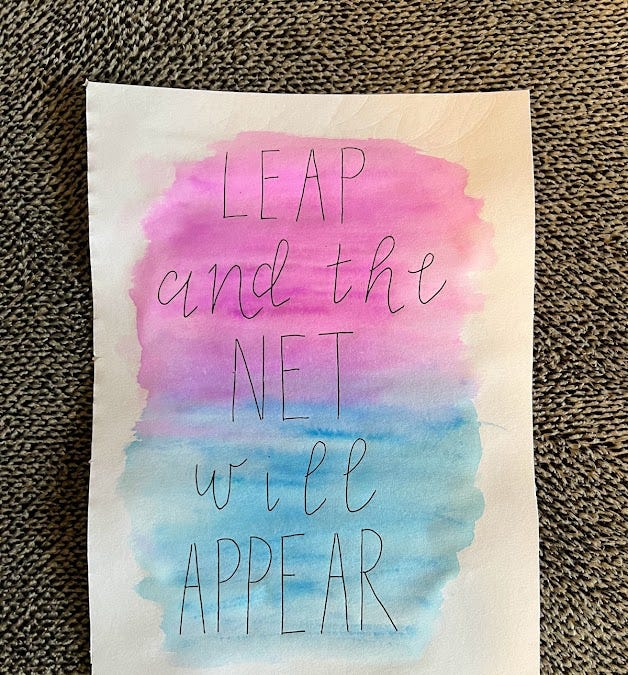 LEAP
and the
NET
will
APPEAR